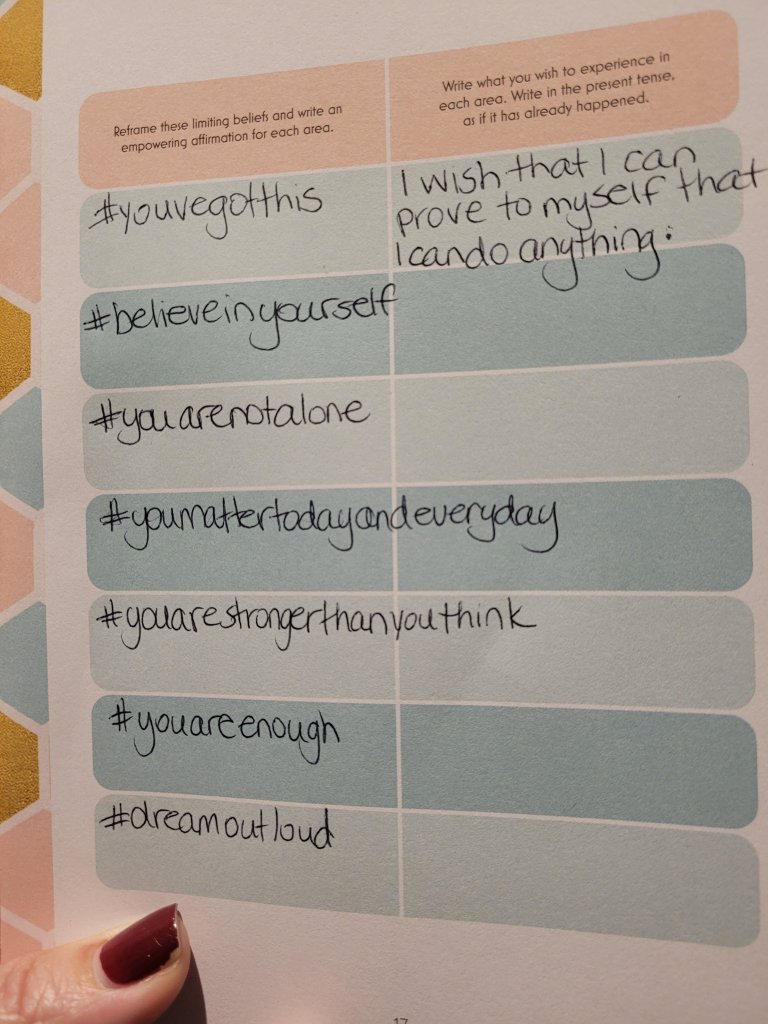 Reframe these limiting beliefs and write an
empowering affirmation for each area.
Write what you wish to experience in
each area. Write in the present tense,
as if it has already happened.
#youvegotthis
I wish that I can
prove to myself that
I can do anything.
#believeinyourself
#youarenotalone
#youmattertodayandeveryday
#youarestrongerthanyouthink
#youareenough
#dreamoutloud
17